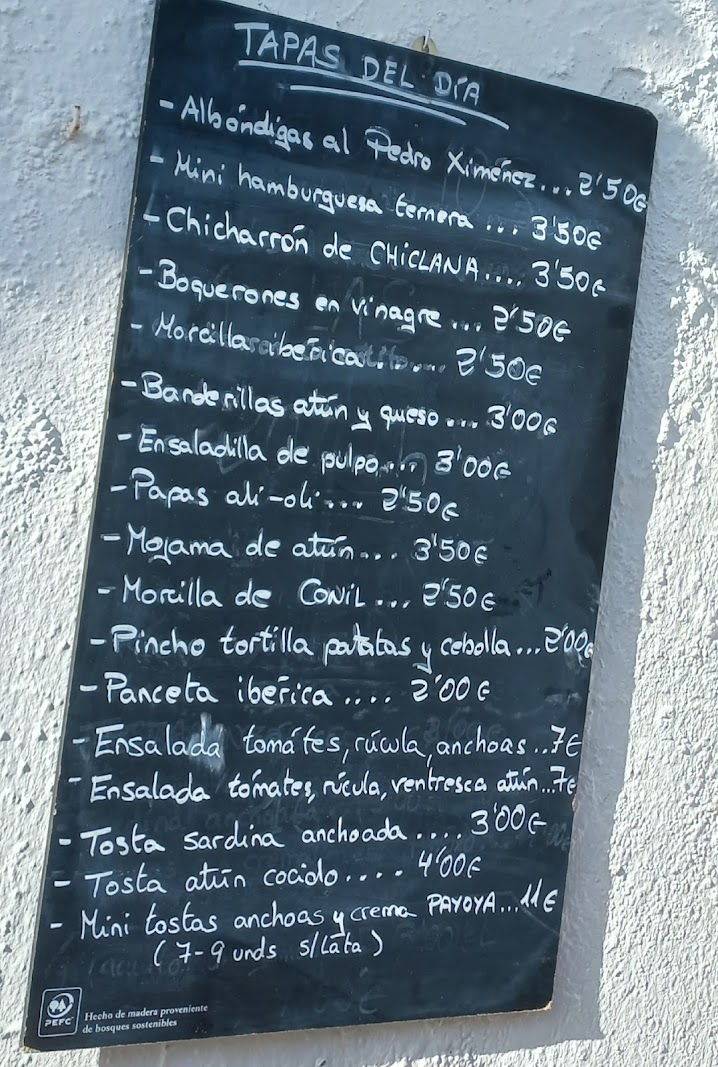 TAPAS DEL DÍA
- Albóndigas al Pedro Ximénez... 2'50€
- Mini hamburguesa ternera ... 3'50€
- Chicharrón de CHICLANA.... 3'50€
- Boquerones en vinagre... 2'50€
- Morcilla ibérica...... 2'50€
- Banderillas atún y queso... 3'00€
- Ensaladilla de pulpo.... 3'00€
- Papas ali-oli.... 2'50€
- Mojama de atún... 3'50€
- Morcilla de CONIL... 2'50€
- Pincho tortilla patatas y cebolla...2'00€
- Panceta ibérica .... 2'00€
- Ensalada tomátes, rúcula, anchoas..7€
- Ensalada tomates, rúcula, ventresca atún...7€
- Tosta sardina anchoada .... 3'00€
- Tosta atún cocido.... 4'00€
- Mini tostas anchoas y crema PAYOYA...11€
(7-9 unds s/Lata)
PEFC
Hecho de madera proveniente
de bosques sostenibles